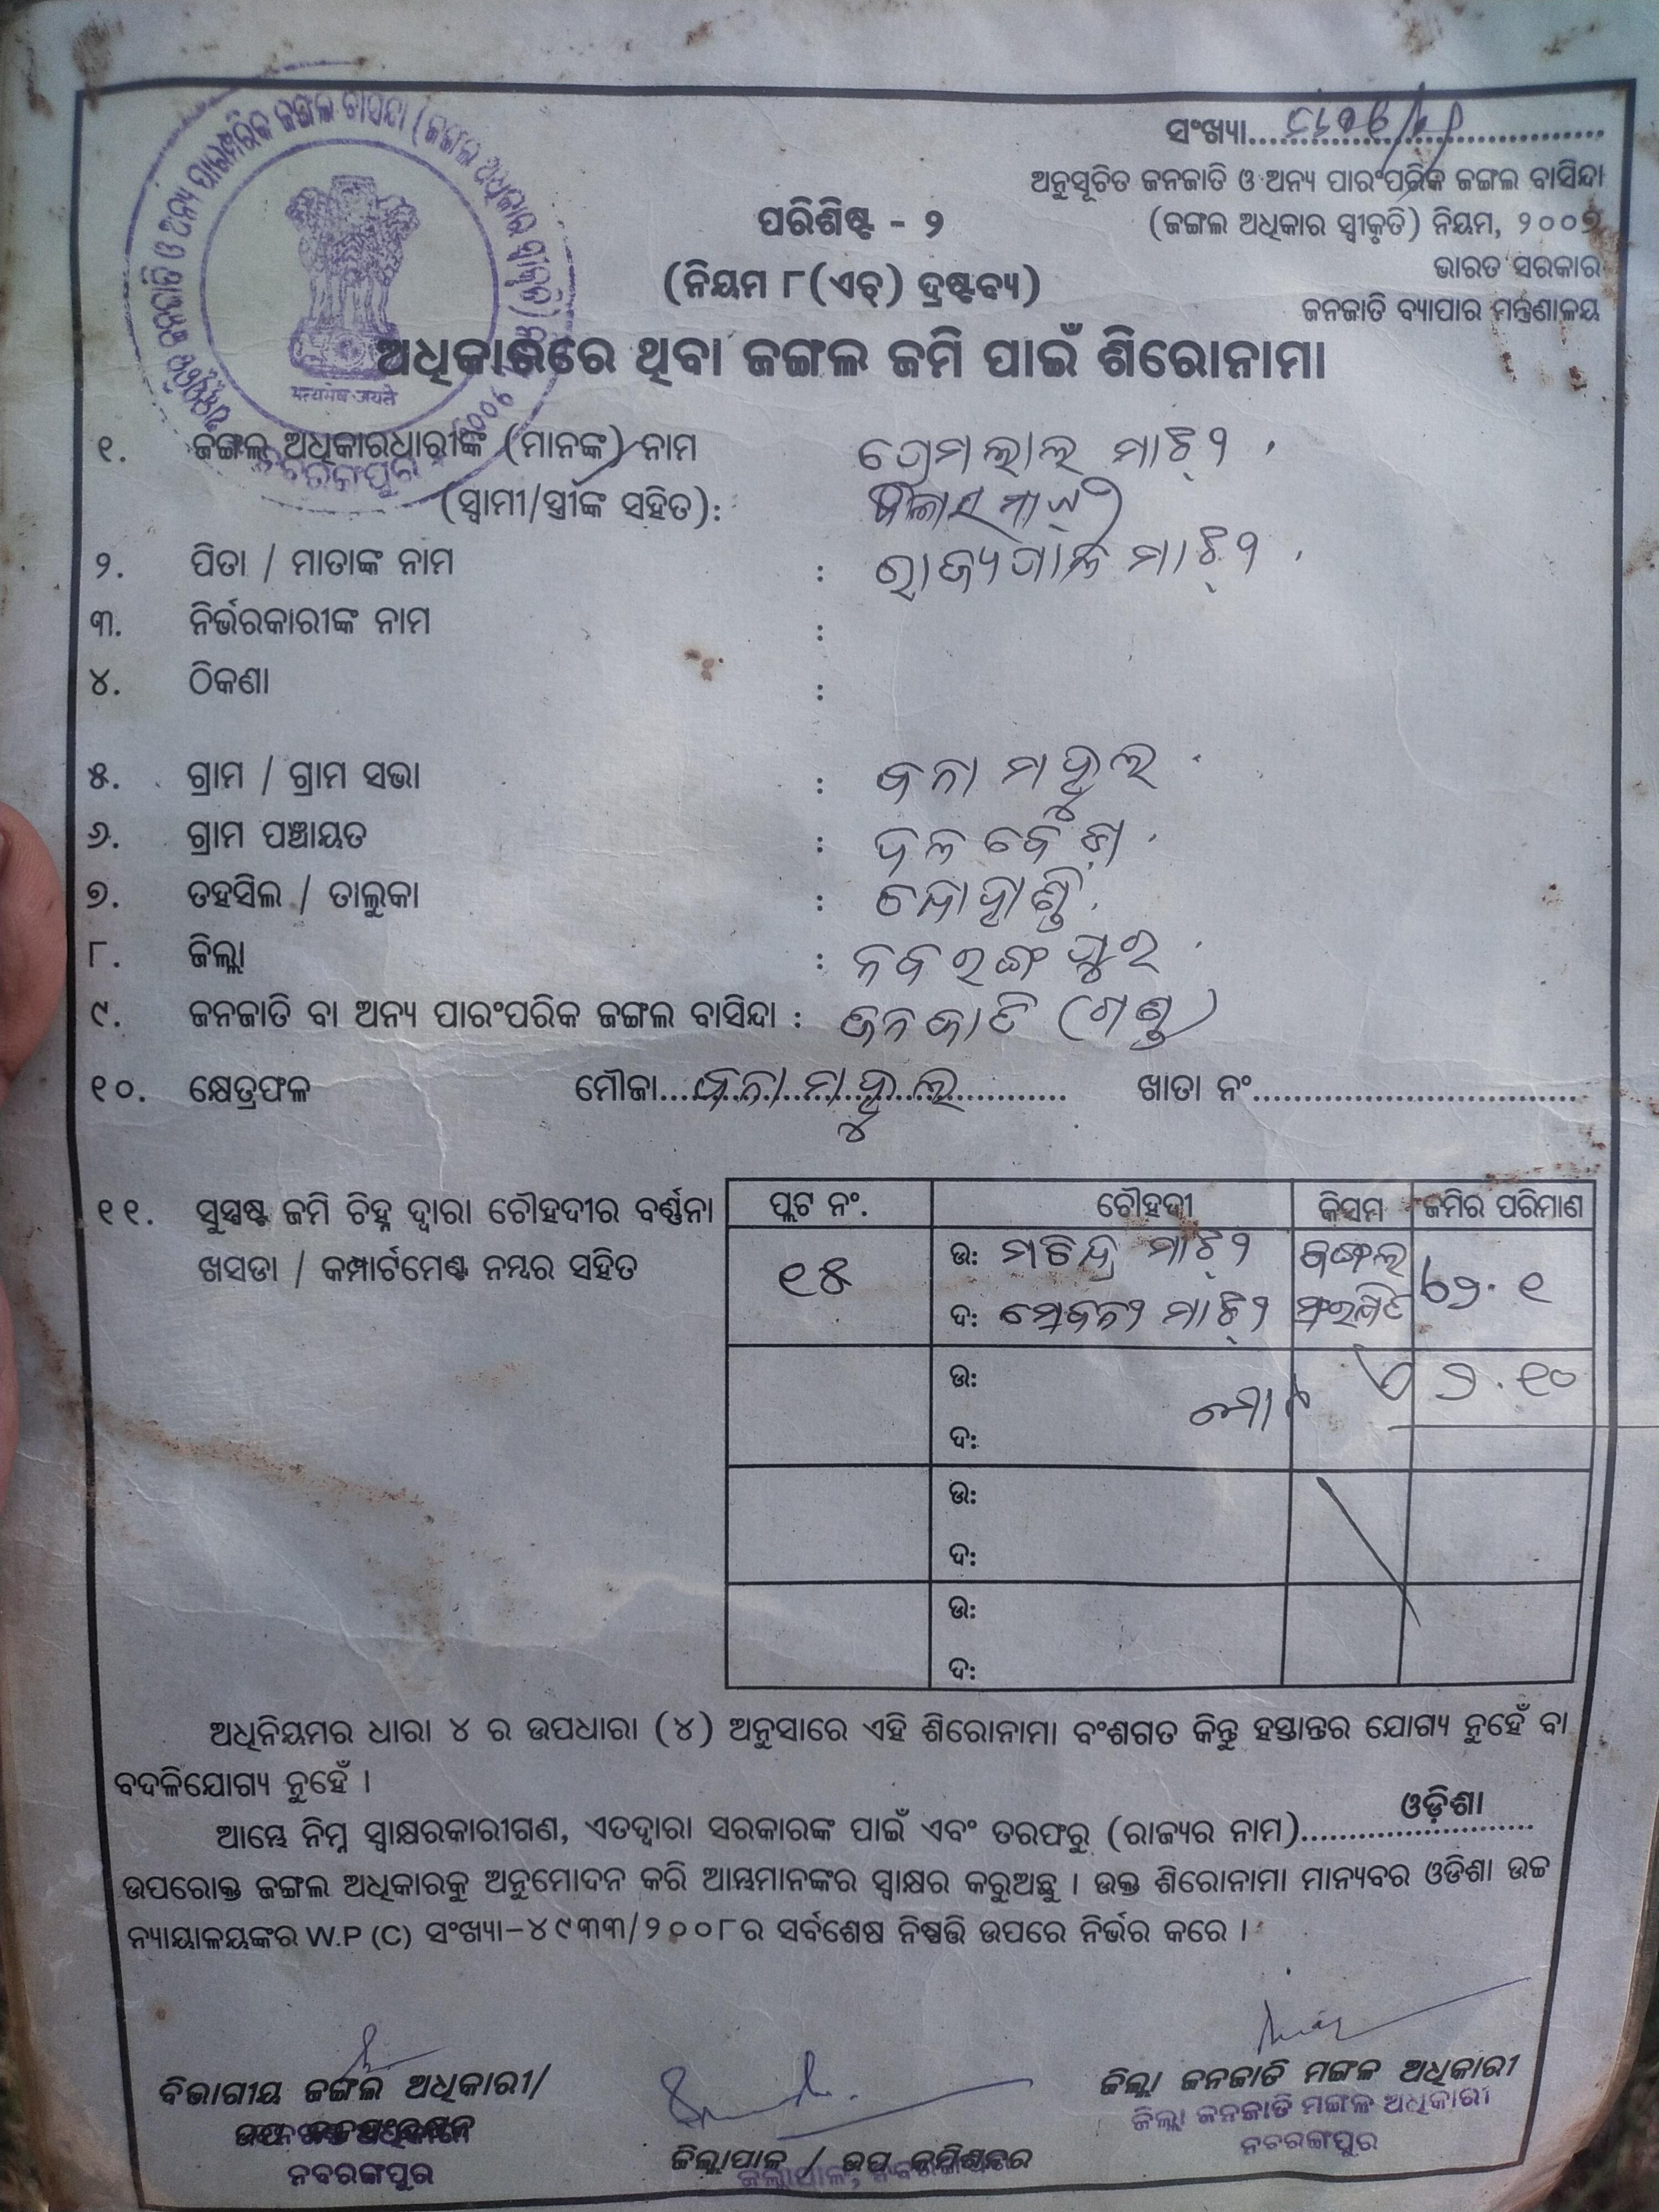 ସଂଖ୍ୟା
ଅନୁସୂଚିତ ଜନଜାତି ଓ ଅନ୍ୟ ପାରଂପରିକ ଜଙ୍ଗଲ ବାସିନ୍ଦା
(ଜଙ୍ଗଲ ଅଧିକାର ସ୍ୱୀକୃତି) ନିୟମ, ୨୦୦୭
ଭାରତ ସରକାର
ଜନଜାତି ବ୍ୟାପାର ମନ୍ତ୍ରଣାଳୟ
ପରିଶିଷ୍ଟ - ୨
(ନିୟମ ୮(ଏଚ୍) ଦ୍ରଷ୍ଟବ୍ୟ)
सत्यमेव जयते
ଅଧିକାରରେ ଥିବା ଜଙ୍ଗଲ ଜମି ପାଇଁ ଶିରୋନାମା
୧. ଜଙ୍ଗଲ ଅଧିକାରଧାରୀଙ୍କ (ମାନଙ୍କ) ନାମ ପ୍ରେମଲାଲ ମାଝି
(ସ୍ୱାମୀ/ସ୍ତ୍ରୀଙ୍କ ସହିତ):
୨. ପିତା / ମାତାଙ୍କ ନାମ : ମାଝି
୩. ନିର୍ଭରକାରୀଙ୍କ ନାମ :
୪. ଠିକଣା :
୫. ଗ୍ରାମ / ଗ୍ରାମ ସଭା : ଵନା ମହୁଲ
୬. ଗ୍ରାମ ପଞ୍ଚାୟତ :
୭. ତହସିଲ / ତାଲୁକା :
୮. ଜିଲ୍ଲା : ନବରଙ୍ଗପୁର
୯. ଜନଜାତି ବା ଅନ୍ୟ ପାରଂପରିକ ଜଙ୍ଗଲ ବାସିନ୍ଦା : ଜନଜାତି (ଗଣ୍ଡ)
୧୦. କ୍ଷେତ୍ରଫଳ ମୌଜା ଵନା ମହୁଲ ଖାତା ନଂ
୧୧. ସୁସ୍ପଷ୍ଟ ଜମି ଚିହ୍ନ ଦ୍ୱାରା ଚୌହଦୀର ବର୍ଣ୍ଣନା
ଖସଡା / କମ୍ପାର୍ଟମେଣ୍ଟ ନମ୍ବର ସହିତ
ପ୍ଲଟ ନଂ. ଚୌହଦୀ କିସମ ଜମିର ପରିମାଣ
୧୫ ଉ: ମାଝି ଜଙ୍ଗଲ
ଦ: ମାଝି
ଉ: ମୋଟ ୨.୧୦
ଦ:
ଉ:
ଦ:
ଉ:
ଦ:
ଅଧିନିୟମର ଧାରା ୪ ର ଉପଧାରା (୪) ଅନୁସାରେ ଏହି ଶିରୋନାମା ବଂଶଗତ କିନ୍ତୁ ହସ୍ତାନ୍ତର ଯୋଗ୍ୟ ନୁହେଁ ବା
ବଦଳିଯୋଗ୍ୟ ନୁହେଁ ।
ଆମ୍ଭେ ନିମ୍ନ ସ୍ୱାକ୍ଷରକାରୀଗଣ, ଏତଦ୍ୱାରା ସରକାରଙ୍କ ପାଇଁ ଏବଂ ତରଫରୁ (ରାଜ୍ୟର ନାମ) ଓଡ଼ିଶା
ଉପରୋକ୍ତ ଜଙ୍ଗଲ ଅଧିକାରକୁ ଅନୁମୋଦନ କରି ଆମ୍ଭମାନଙ୍କର ସ୍ୱାକ୍ଷର କରୁଅଛୁ । ଉକ୍ତ ଶିରୋନାମା ମାନ୍ୟବର ଓଡିଶା ଉଚ୍ଚ
ନ୍ୟାୟାଳୟଙ୍କର W.P (C) ସଂଖ୍ୟା-୪୯୩୩/୨୦୦୮ର ସର୍ବଶେଷ ନିଷ୍ପତ୍ତି ଉପରେ ନିର୍ଭର କରେ ।
ବିଭାଗୀୟ ଜଙ୍ଗଲ ଅଧିକାରୀ/
ନବରଙ୍ଗପୁର
ଜିଲ୍ଲାପାଳ / ଉପ କମିଶନର
ଜିଲ୍ଲାପାଳ, ନବରଙ୍ଗପୁର
ଜିଲ୍ଲା ଜନଜାତି ମଙ୍ଗଳ ଅଧିକାରୀ
ଜିଲ୍ଲା ଜନଜାତି ମଙ୍ଗଳ ଅଧିକାରୀ
ନବରଙ୍ଗପୁର